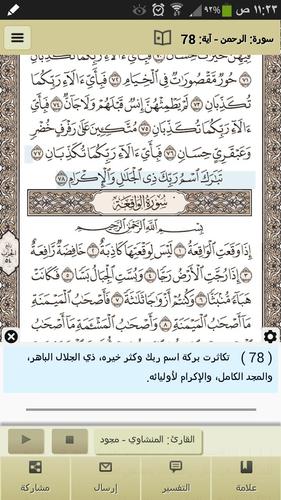 ١١:٢٣ ص 92%
سورة: الرحمن - آية: 78
فِيهِنَّ خَيْرَاتٌ حِسَانٌ ۝٧٠ فَبِأَيِّ ءَالَآءِ رَبِّكُمَا
تُكَذِّبَانِ ۝٧١ حُورٌ مَّقْصُورَاتٌ فِي الْخِيَامِ ۝٧٢ فَبِأَيِّ ءَالَآءِ رَبِّكُمَا
تُكَذِّبَانِ ۝٧٣ لَمْ يَطْمِثْهُنَّ إِنسٌ قَبْلَهُمْ وَلَا جَآنٌّ ۝٧٤ فَبِأَيِّ
ءَالَآءِ رَبِّكُمَا تُكَذِّبَانِ ۝٧٥ مُتَّكِـِٔينَ عَلَىٰ رَفْرَفٍ خُضْرٍ
وَعَبْقَرِيٍّ حِسَانٍ ۝٧٦ فَبِأَيِّ ءَالَآءِ رَبِّكُمَا تُكَذِّبَانِ ۝٧٧
تَبَٰرَكَ ٱسْمُ رَبِّكَ ذِى ٱلْجَلَٰلِ وَٱلْإِكْرَامِ ۝٧٨
سُورَةُ الْوَاقِعَةِ
بِسْمِ ٱللَّهِ ٱلرَّحْمَٰنِ ٱلرَّحِيمِ
إِذَا وَقَعَتِ ٱلْوَاقِعَةُ ۝١ لَيْسَ لِوَقْعَتِهَا كَاذِبَةٌ ۝٢ خَافِضَةٌ رَّافِعَةٌ
۝٣ إِذَا رُجَّتِ ٱلْأَرْضُ رَجًّا ۝٤ وَبُسَّتِ ٱلْجِبَالُ بَسًّا ۝٥ فَكَانَتْ
هَبَآءً مُّنۢبَثًّا ۝٦ وَكُنتُمْ أَزْوَٰجًا ثَلَٰثَةً ۝٧ فَأَصْحَٰبُ
ٱلْمَيْمَنَةِ مَآ أَصْحَٰبُ ٱلْمَيْمَنَةِ ۝٨ وَأَصْحَٰبُ ٱلْمَشْـَٔمَةِ مَآ أَصْحَٰبُ
(78) تكاثرت بركة اسم ربك وكثر خيره، ذي الجلال الباهر،
والمجد الكامل، والإكرام لأوليائه.
القارئ: المنشاوي - مجود
علامة
التفسير
إرسال
مشاركة